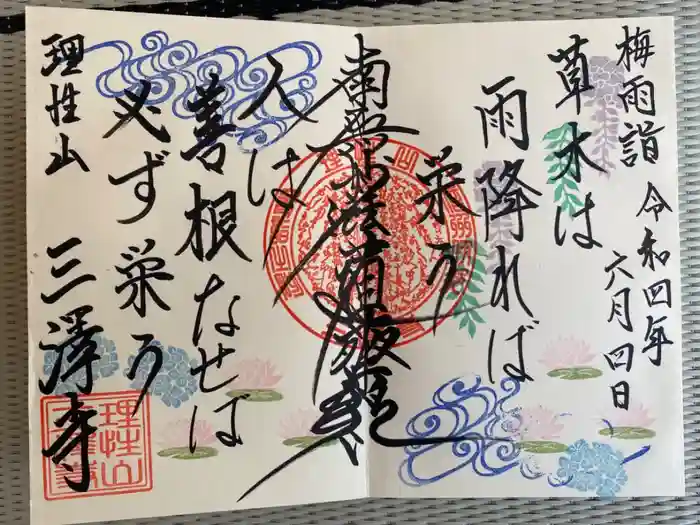 梅雨詣 令和四年
六月四日
草木は
雨降れば
栄う
南無妙法蓮華経
人は
善根なせば
必ず栄う
理性山 三澤寺